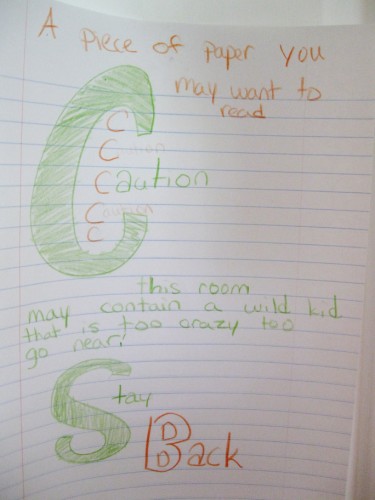 A Piece of Paper you
may want to
read
C
C
Caution
Caution
C
this room
may contain a wild kid
that is too crazy too
go near!
Stay
Back